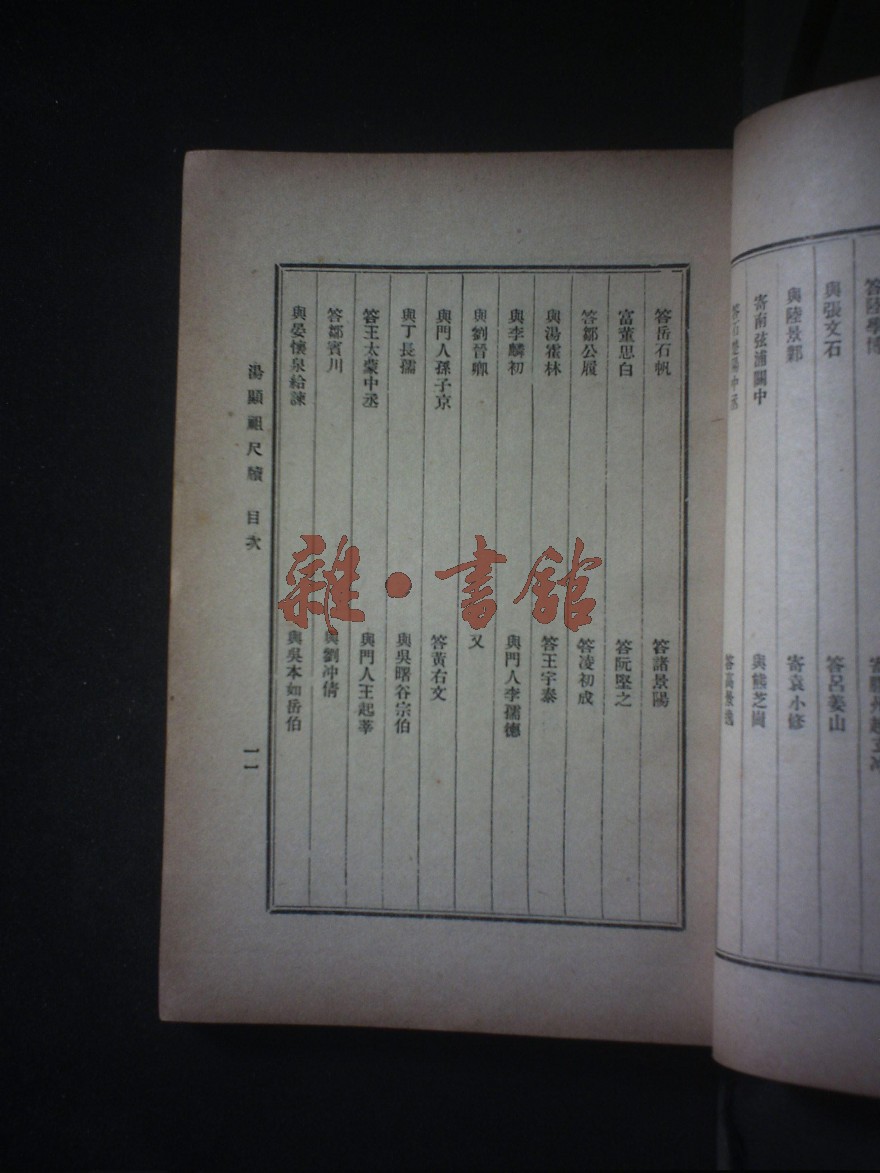 與張文石
答呂姜山
與陸景鄴
寄袁小修
寄南弦浦關中
與熊芝岡
答岳石帆
答諸景陽
富董思白
答阮堅之
答鄒公履
答凌初成
與湯霍林
答王宇泰
與李麟初
與門人李孺德
與劉晉卿
又
與門人孫子京
答黃右文
與丁長孺
與吳曙谷宗伯
答王太蒙中丞
與門人王起莘
答鄒賓川
與劉沖倩
與晏懷泉給諫
與吳本如岳伯
湯顯祖尺牘 目次
一一
雜·書館